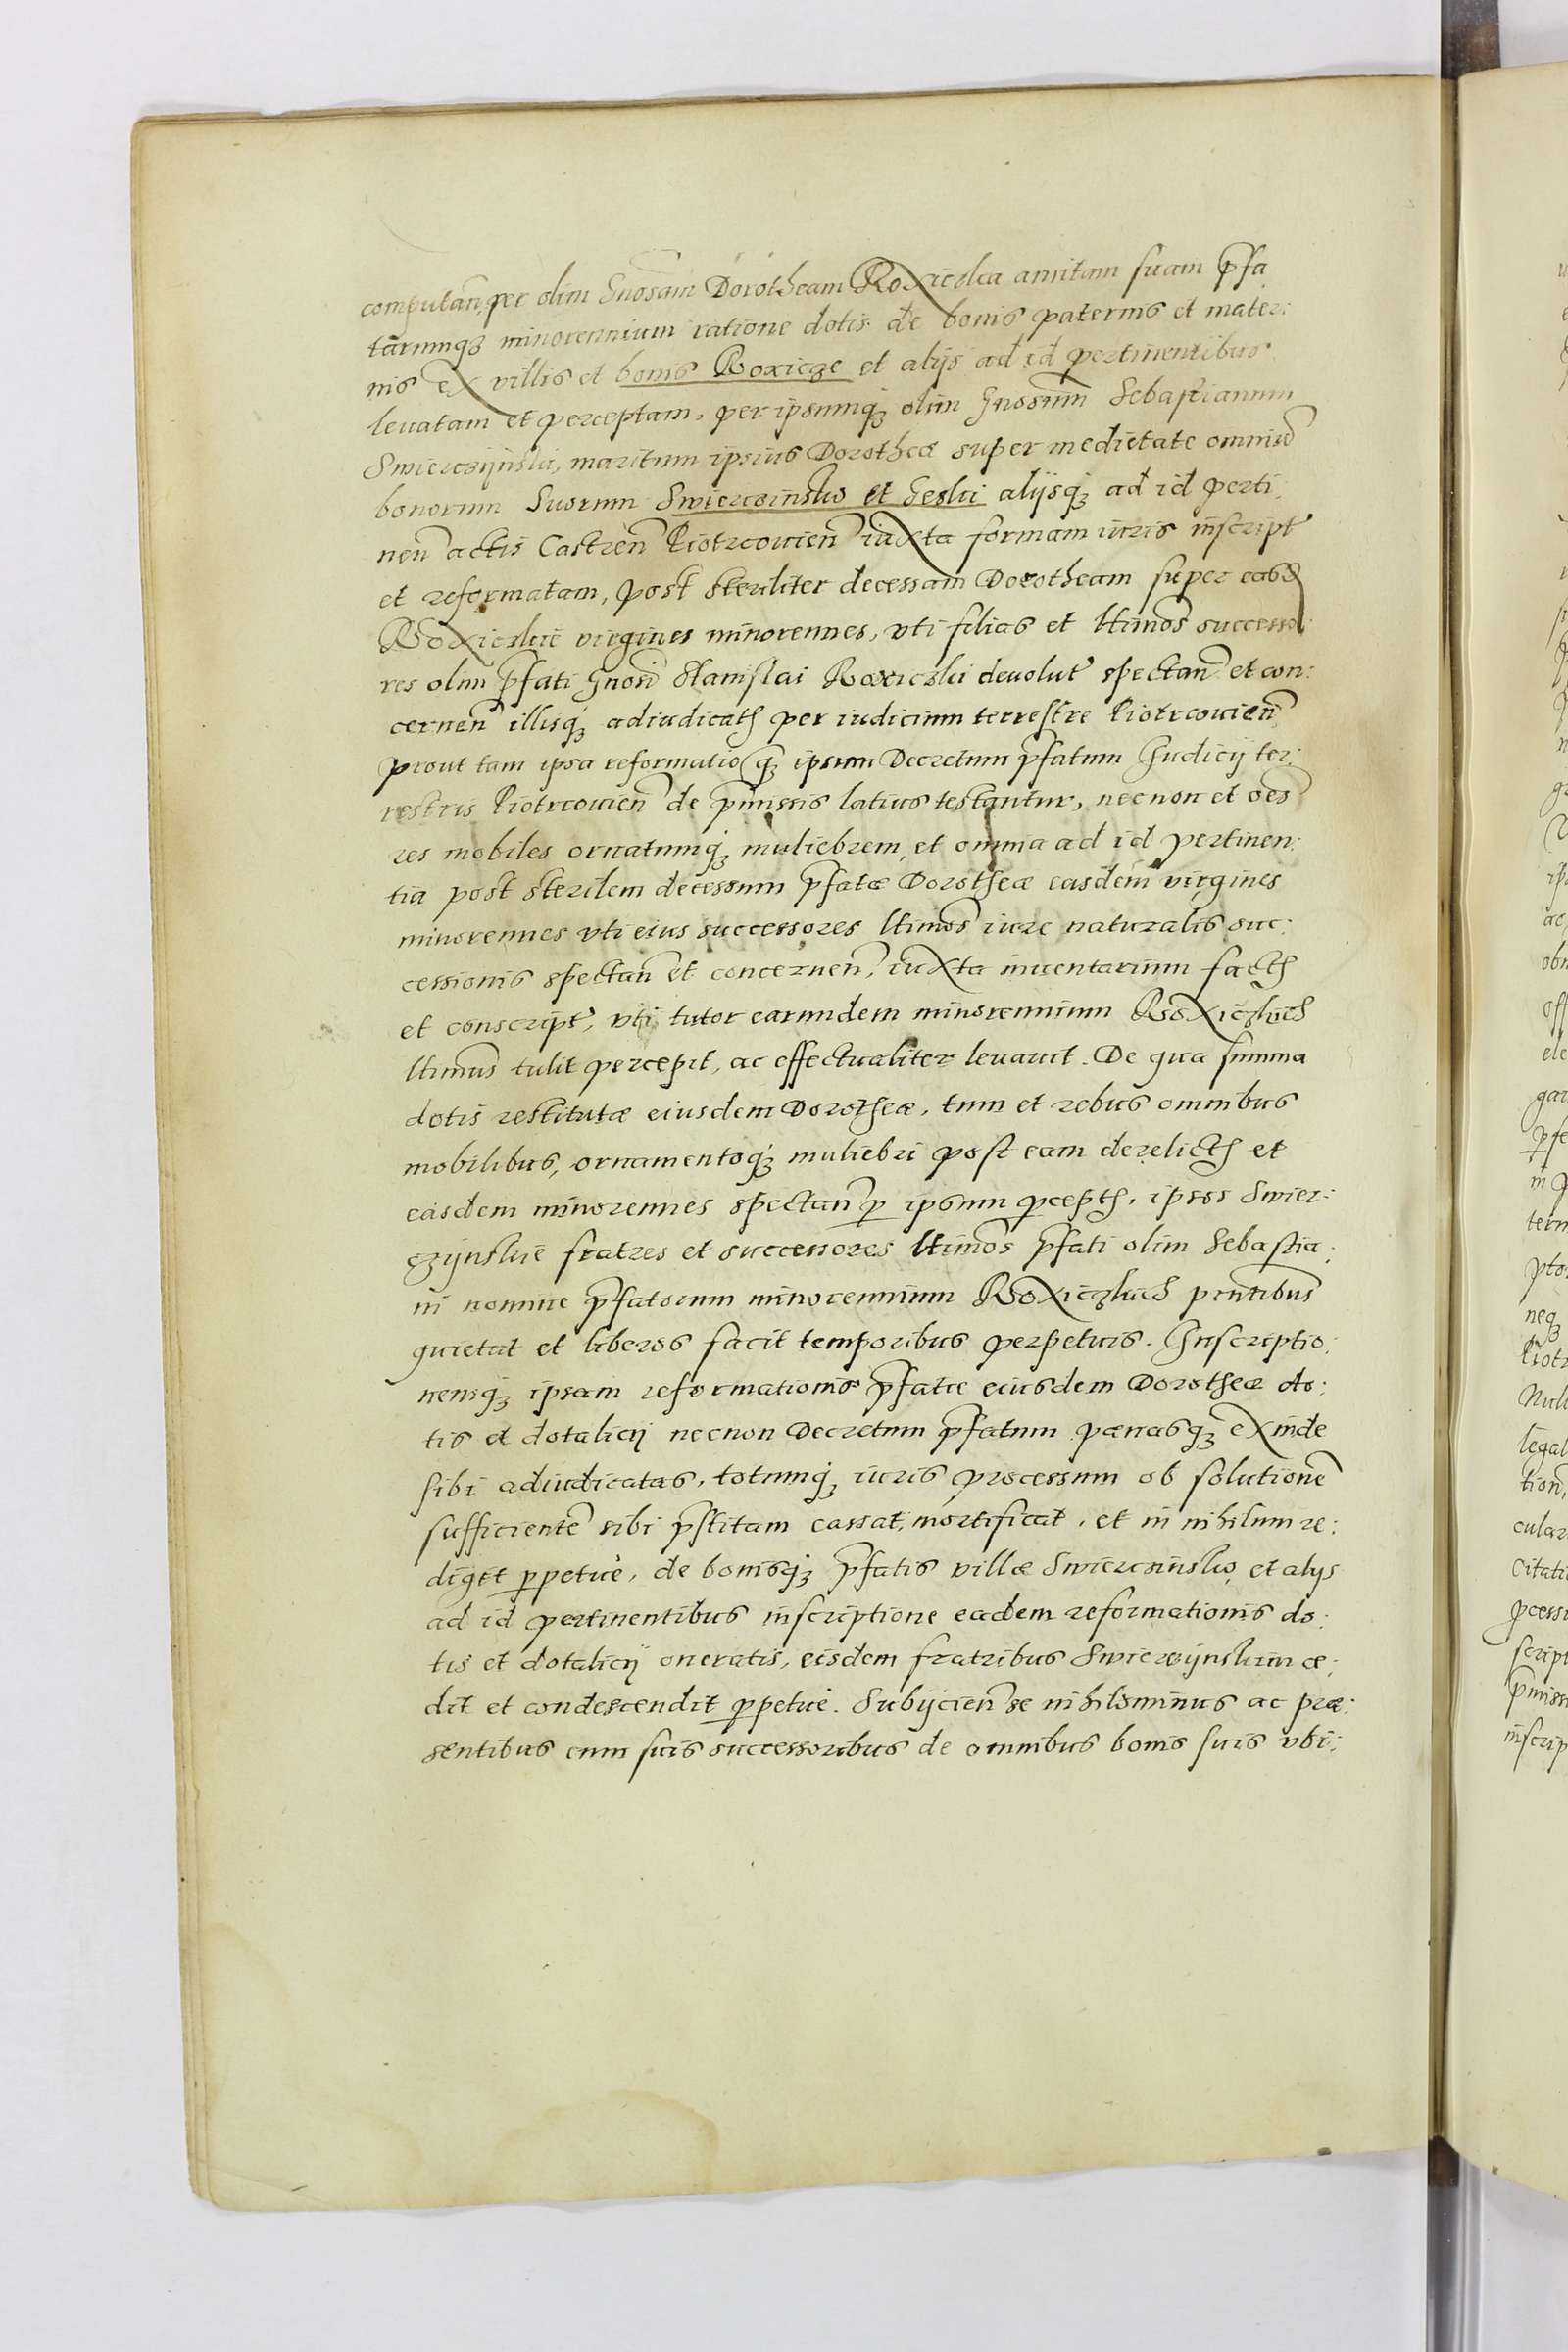 computan̄, per olim Gnosam Dorotheam Roxiczka amitam suam p̄fa
tarumq₃ minorennium ratione dotis de bonis paternis et mater:
nis ex villis et bonis Roxicze et alijs ad id pertinentibus
leuatam et perceptam, per ipsumq₃ olim Gnosum Sebastianum
Swierczijnski, maritum ipsius Dorotheæ super medietate omniū
bonorum suorum Swierczinsko et Geski alijsq₃ ad id perti:
nen̄ actis Castren̄ Piotrcouien̄ iuxta formam iuris inscript
et reformatam, post steriliter decessam Dorotheam super easd
Roxiczkie virgines minorennes, vti filias et ltimos successo:
res olim p̄fati Gnosi Stanislai Roxiczki deuolut spectan̄ et con:
cernen̄ illisq₃ adiudicat per iudicium terrestre Piotrcouien̄
prout tam ipsa reformatio q₃ ipsum Decretum p̄fatum Iudicij ter:
restris Piotrcouien̄ de p̄missis latius testantur, necnon et oēs
res mobiles ornatumq₃ muliebrem, et omnia ad id pertinen:
tia post sterilem decessum p̄fatæ Dorotheæ easdem virgines
minorennes vti eius successores ltimos iure naturalis suc:
cessionis spectan̄ et concernen̄, iuxta inuentarium fact
et conscript, vti tutor earundem minorennium Roxiczkich
ltimus tulit percepit, ac effectualiter leuauit. De qua summa
dotis restitutæ eiusdem Dorotheæ, tum et rebus omnibus
mobilibus, ornamentoq₃ muliebri post eam derelict et
easdem minorennes spectan̄ p̱ ipsum p̱cept, ipsos Swier:
czijnskie fratres et successores ltimos p̄fati olim Sebastia:
ni nomine p̄fatorum minorennium Roxiczkich p̄ntibus
quietat et liberos facit temporibus perpetuis. Inscriptio:
nemq₃ ipsam reformationis p̄fatæ eiusdem Dorotheæ do:
tis et dotalicij necnon Decretum p̄fatum pœnasq₃ exinde
sibi adiudicatas, totumq₃ iuris processum ob solutionē
sufficientē sibi p̄stitam cassat, mortificat, et in nihilum re:
digit p̱petuè, de bonisq₃ p̄fatis villæ Swierczinsko et alijs
ad id pertinentibus inscriptione eadem reformationis do:
tis et dotalicij oneratis, eisdem fratribus Swierczijnskim ce:
dit et condescendit p̱petuè. Subijcien̄ se nihilominus ac præ:
sentibus cum suis successoribus de omnibus bonis suis vbi: